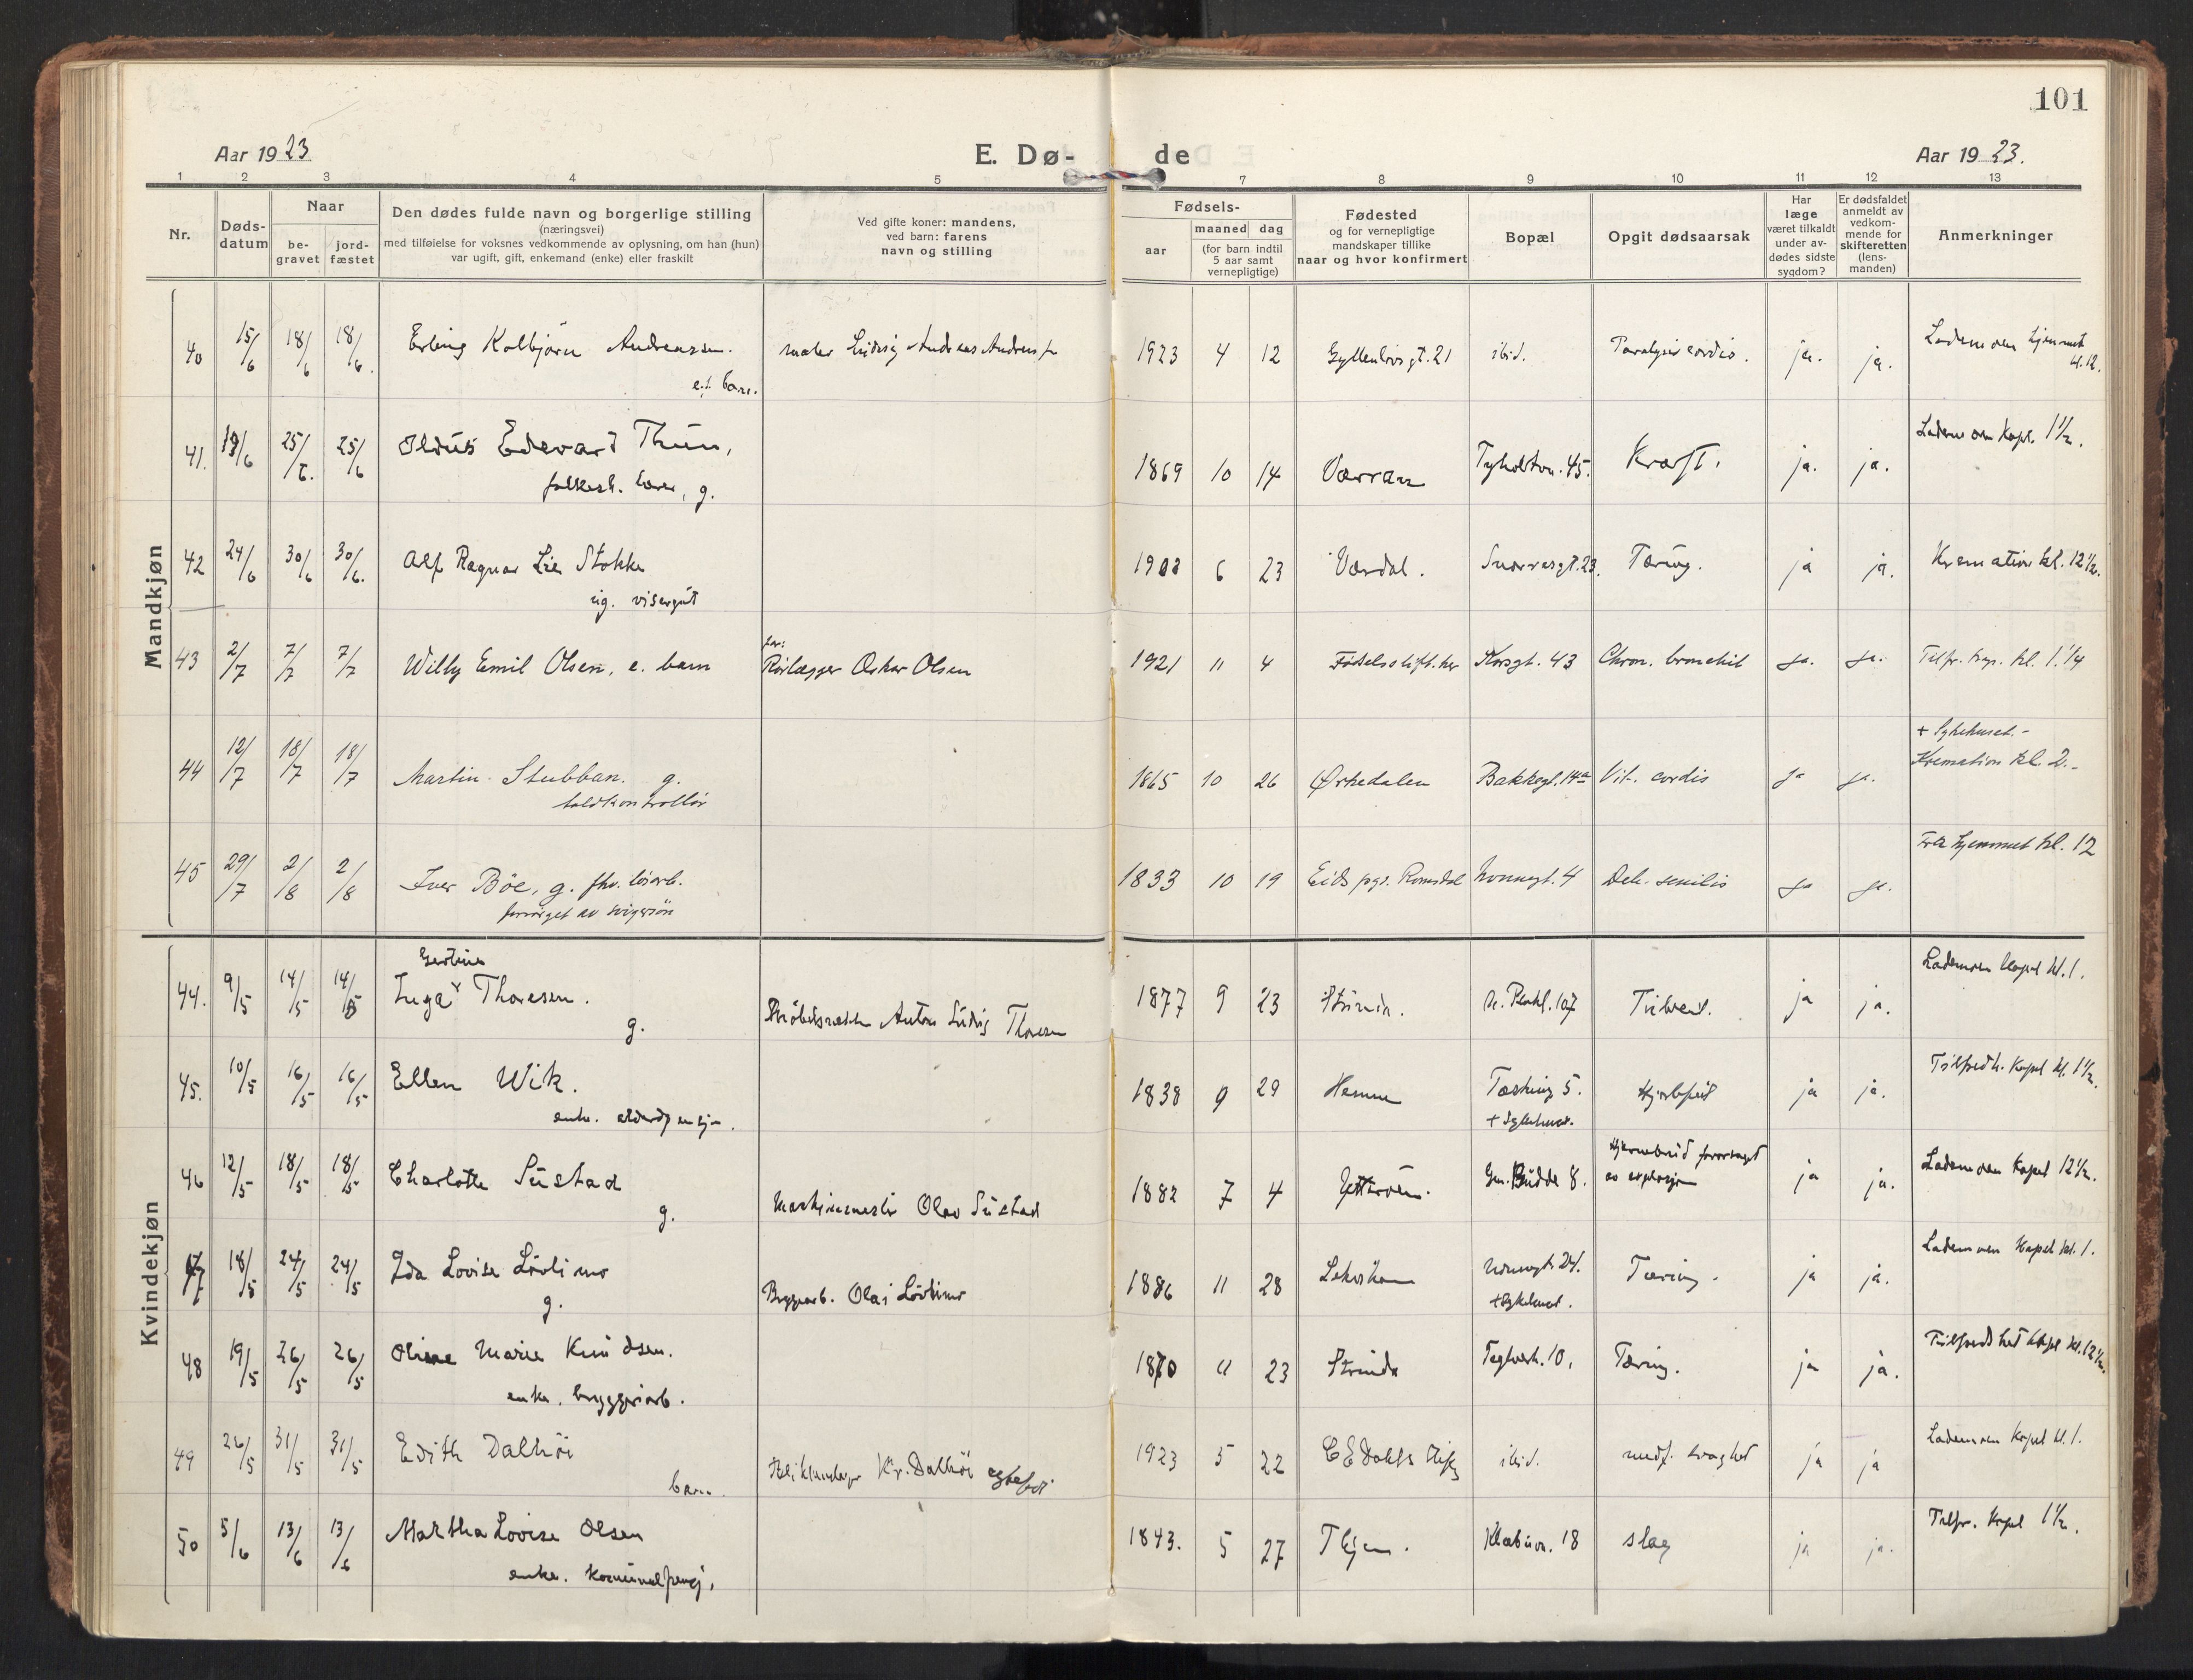 101
Aar 1923
E. Dø-
de
Aar 1923.
1 2 3 3 4 5 7 8 9 10 11 12 13
Nr.
Døds-
datum
Naar
be-
gravet
jord-
fæstet
Den dødes fulde navn og borgerlige stilling
(næringsvei)
med tilføielse for voksnes vedkommende av oplysning, om han (hun)
var ugift, gift, enkemand (enke) eller fraskilt
Ved gifte koner: mandens,
ved barn: farens
navn og stilling
Fødsels-
aar
maaned dag
(for barn indtil
5 aar samt
vernepligtige)
Fødested
og for vernepligtige
mandskaper tillike
naar og hvor konfirmert
Bopæl
Opgit dødsaarsak
Har
læge
været tilkaldt
under av-
dødes sidste
sygdom?
Er dødsfaldet
anmeldt av
vedkom-
mende for
skifteretten
(lens-
manden)
Anmerkninger
Mandkjøn
40 15/6 18/6 18/6. Erling Kolbjörn Andreassen. 1923 4 12 Gyllenborsgt. 21 ibid. Paralysis cordis. ja. ja. Lademoen hjemmet
e. barn. kl. 12.
41. 25/6. 25/6 Edevard Thun, 1869 10 14 Værran Tyholtvn. 45. Kræft. ja. ja. Lademoen Kapel. 1½.
folkesk. lærer, g.
42 24/6 30/6 30/6. Alf Ragnar Lie Stokke 6 23 Værdal. Snorresgt. 23. Tæring. ja ja. Kremation kl. 12½.
ug. visergut
43 2/7 7/7 7/7 Willy Emil Olsen, e. barn far:
Rörlægger Oskar Olsen 1921 11 4 Fødselsstift. her Korsgt. 43 Chron. bronchit ja. ja. Tilfr. kap. kl. 1.¼
+ Sykehuset.-
44 12/7 18/7 18/7 Martin Stubban. g. 1865 10 26 Ørkedalen Bakkegt. 14a Vit. cordis ja ja. Kremation kl. 2.-
toldkontrollör
45 29/7 2/8 2/8 Iver Böe, g. fhv. löiarb. 1833 10 19 Eids pgd. Romsdal Nonnegt. 4 Deb. senilis ja ja. Fra hjemmet kl. 12
forsörget av svigersön
Kvindekjøn
Gertine
44. 9/5 14/5 14/5 Inga Thoresen. Anton Ludvig Thoresen 1877 9 23 Strinda. Tuberk. ja ja. Lademoen Kapel kl. 1.
g.
45. 10/5 16/5 16/5 Ellen Wik. 1838 9 29 Hemne 5. Hjertefeil ja ja. Tilfredsh. Kapel kl. 1½.
enke. alderdpensjon. + Sykehuset.
46 12/5 18/5 18/5 Charlotte Sustad Maskinmester Olav Sustad 1882 7 4 Ytteröen. Gen. Budde 8. Hjernebrud forarsaget
av explosjon ja ja. Lademoen Kapel 12½.
g.
47 18/5 24/5 24/5 Ida Lovise Lövlimo Byggearb. Olai Lövlimo 1886 11 28 Leksviken Nonnegt. 24. Tæring. ja ja. Lademoen Kapel kl. 1.
g. + Sykehuset.
48 19/5 26/5 26/5 Oline Marie Knudsen. 1870 11 23 Strinda Teglverk. 10. Tæring. ja ja. Tilfredshet Kapel kl. 12½.
enke. bryggeriarb.
49 26/5 31/5 31/5 Edith Dalhöi Kr. Dalhöi 1923 5 22 C E Dahls Stift ibid. medf. svaghet ja ja Lademoen Kapel kl. 1.
barn.
50 5/6 13/6 13/6 Martha Lovise Olsen 1843. 5 27 Tlgen. Klæbuvn. 18 slag ja ja. Tilfr. Kapel 1½.
enke. komunalpensj.